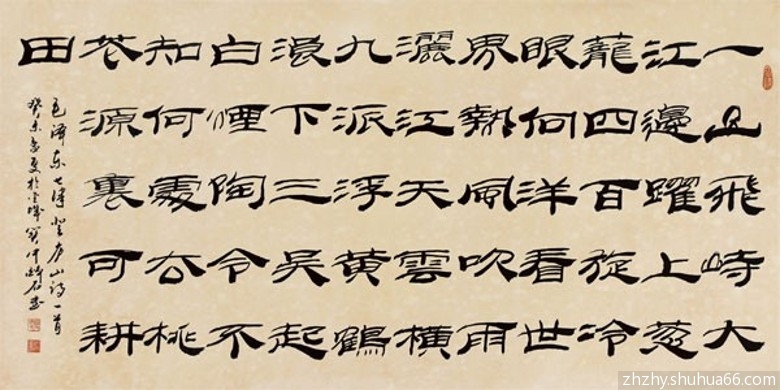 一山飛峙大
江邊躍上葱
蘢四百旋冷
眼向洋看世
界熱風吹雨
灑江天雲橫
九派浮黄鶴
浪下三吴起
白煙陶令不
知何處去桃
花源裏可耕
田
毛澤东七律登庐山诗一首
癸未年夏於京城
zhzhyshuhua66.com